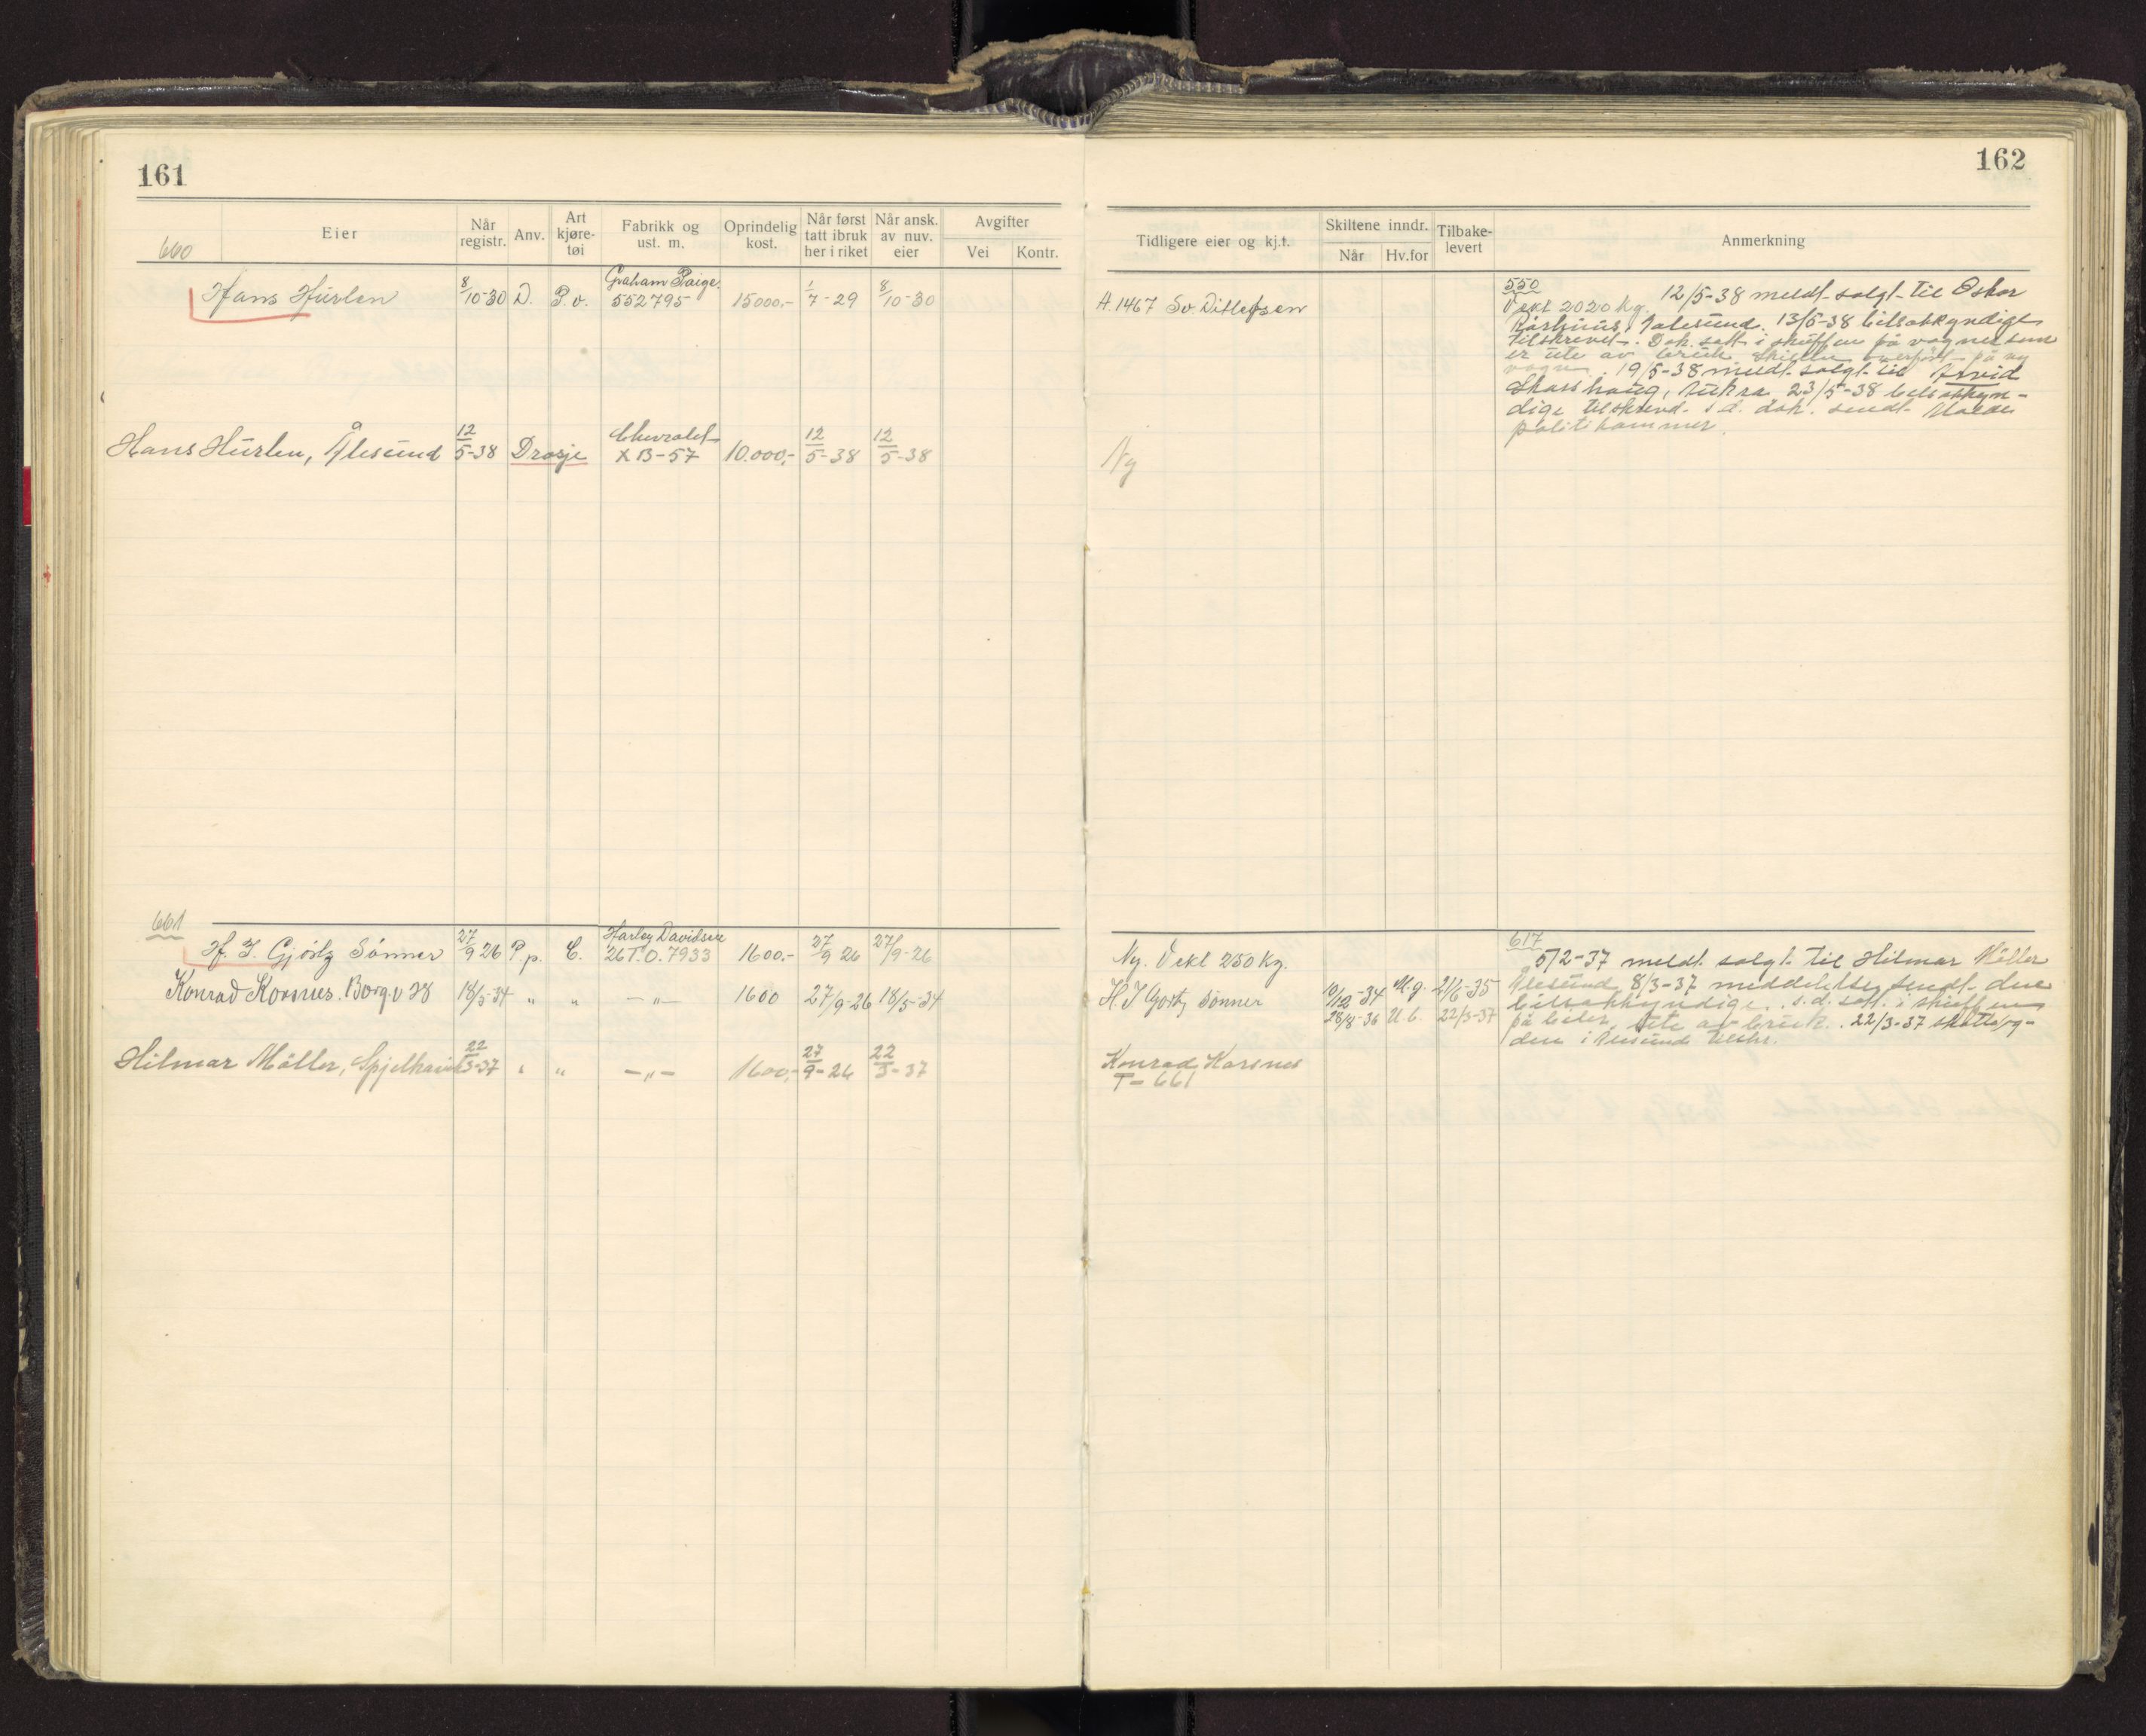 161
660
Eier
Når registr.
Anv.
Art kjøre-tøi
Fabrikk og ust. m.
Oprindelig kost.
Når først tatt ibruk her i riket
Når ansk. av nuv. eier
Avgifter
Vei
Kontr.
Hans Hurlen 8/10-30 D. P.v. Graham Paige. 552795 15000.- 1/7-29 8/10-30
Hans Hurlen, Ålesund 12/5-38 Drosje Chevrolet XB-57 10.000,- 12/5-38 12/5-38
661
H. I. Gjörtz Sönner 27/9 26 P.p. C. Harley Davidson 26T.O.7933 1600.- 27/9 26 27/9-26
Konrad Korsnes. Borg.v 28 18/5-34 " " -"- 1600 27/9-26 18/5-34
Hilmar Möller, Spjelkavik 22/3-37 " " -"- 1600,- 27/9-26 22/3-37
162
Tidligere eier og kj.t.
Skiltene inndr.
Når
Hv.for
Tilbake-levert
Anmerkning
A.1467 Sv. Ditlefsen
550
Vekt 2020 kg. 12/5-38 meldt solgt til Oskar
Ålesund. 13/5-38 bilsakkyndige
tilskrevet. Dok. satt i skuffen på vogner som
er ute av bruk. Skiltene overfört på ny
vogn. 19/5-38 meldt solgt til Arvid
Aukra 23/5-38 bilsakkyn-
dige tilskrevet. s.d. dok. sendt Molde
politikammer.
Ny
617
Ny. Vekt 250 kg.
5/2-37 meldt solgt til Hilmar Möller
H. I Gjörtz Sönner 10/12-34 M.g. 21/6-35
28/8-36 U.b. 22/3-37
Ålesund 8/3-37 meddelelse sendt den
bilsakkyndige. s.d. satt i skuffen
på biler ute av bruk. 22/3-37 skattefog-
den i Ålesund tilskr.
Konrad Korsnes
T-661